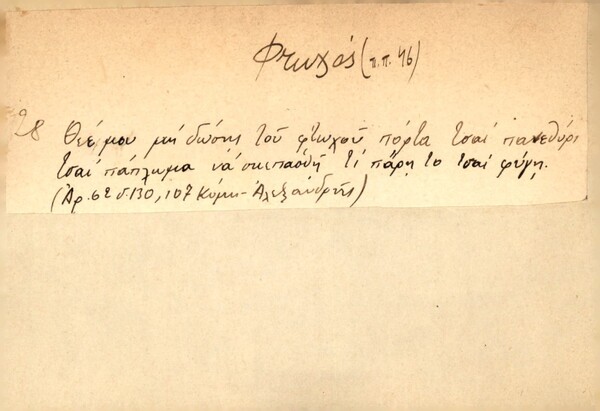 Φτωχός (π.π. 46)
28 Θεέ μου μή δώσης τού φτωχού πόρτα τσαί παναθύρι
τσαί πάπλωμα νά σκεπασθή τί πάρη το τσαί φύγη.
(Αρ. 62 σ. 130, 107 Κύμη - Αλεξανδρής)